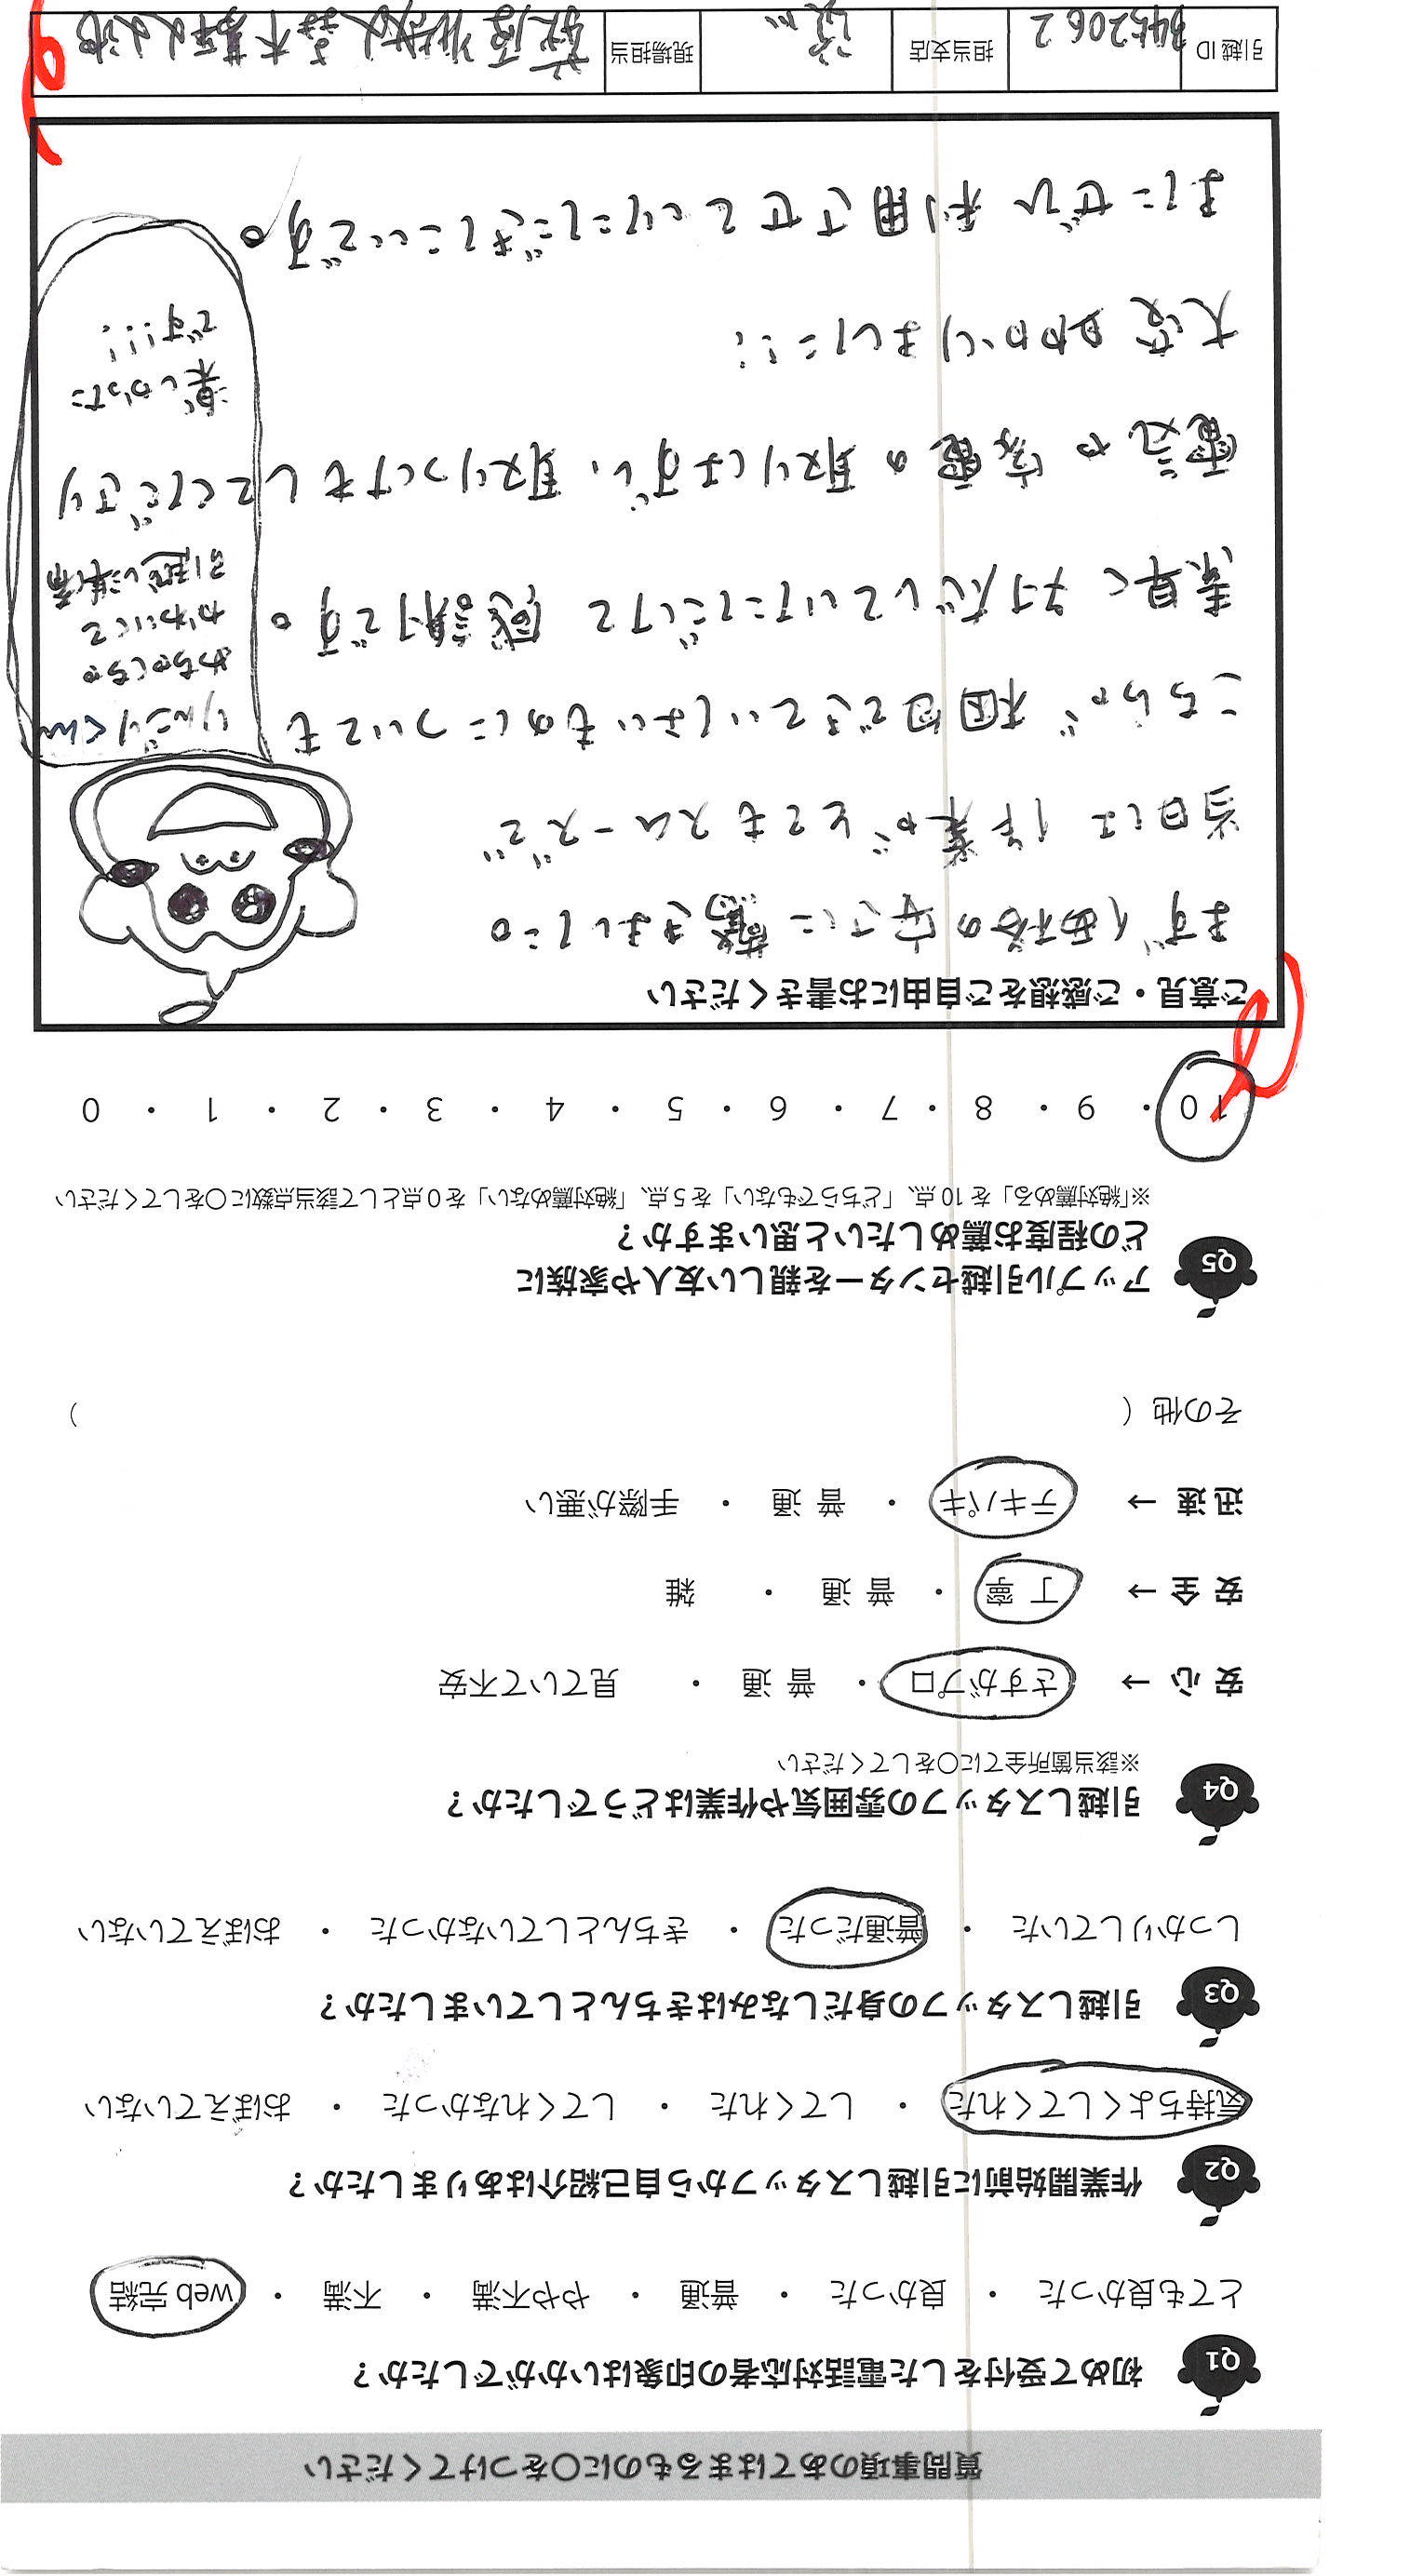 質問事項のあてはまるものに○をつけてください
Q1 初めて受付をした電話対応者の印象はいかがでしたか？
とても良かった ・ 良かった ・ 普通 ・ やや不満 ・ 不満 ・ web 完結
Q2 作業開始前に引越しスタッフから自己紹介はありましたか？
気持ちよくしてくれた ・ してくれた ・ してくれなかった ・ おぼえていない
Q3 引越しスタッフの身だしなみはきちんとしていましたか？
しっかりしていた ・ 普通だった ・ きちんとしていなかった ・ おぼえていない
Q4 引越しスタッフの雰囲気や作業はどうでしたか？
※該当箇所全てに○をしてください
安 心 → さすがプロ ・ 普 通 ・ 見ていて不安
安 全 → 丁 寧 ・ 普 通 ・ 雑
迅 速 → テキパキ ・ 普 通 ・ 手際が悪い
その他（ ）
Q5 アップル引越センターを親しい友人や家族に
どの程度お薦めしたいと思いますか？
※「絶対薦める」を 10 点、「どちらでもない」を 5 点、「絶対薦めない」を 0 点として該当点数に○をしてください
10 ・ 9 ・ 8 ・ 7 ・ 6 ・ 5 ・ 4 ・ 3 ・ 2 ・ 1 ・ 0
ご意見・ご感想をご自由にお書きください
まず価格の安さに驚きました。
当日は作業がとてもスムーズで
こちらが梱包できていないものについても
素早く対応していただけて 感謝です。
電気や家電の取りはずし、取りつけもしてくださり
大変助かりました!!
またぜひ利用させていただきたいです。
りんごりくん
めちゃくちゃ
かわいくて
引越し準備
楽しかった
です!!!
引越 ID
担当支店
現場担当